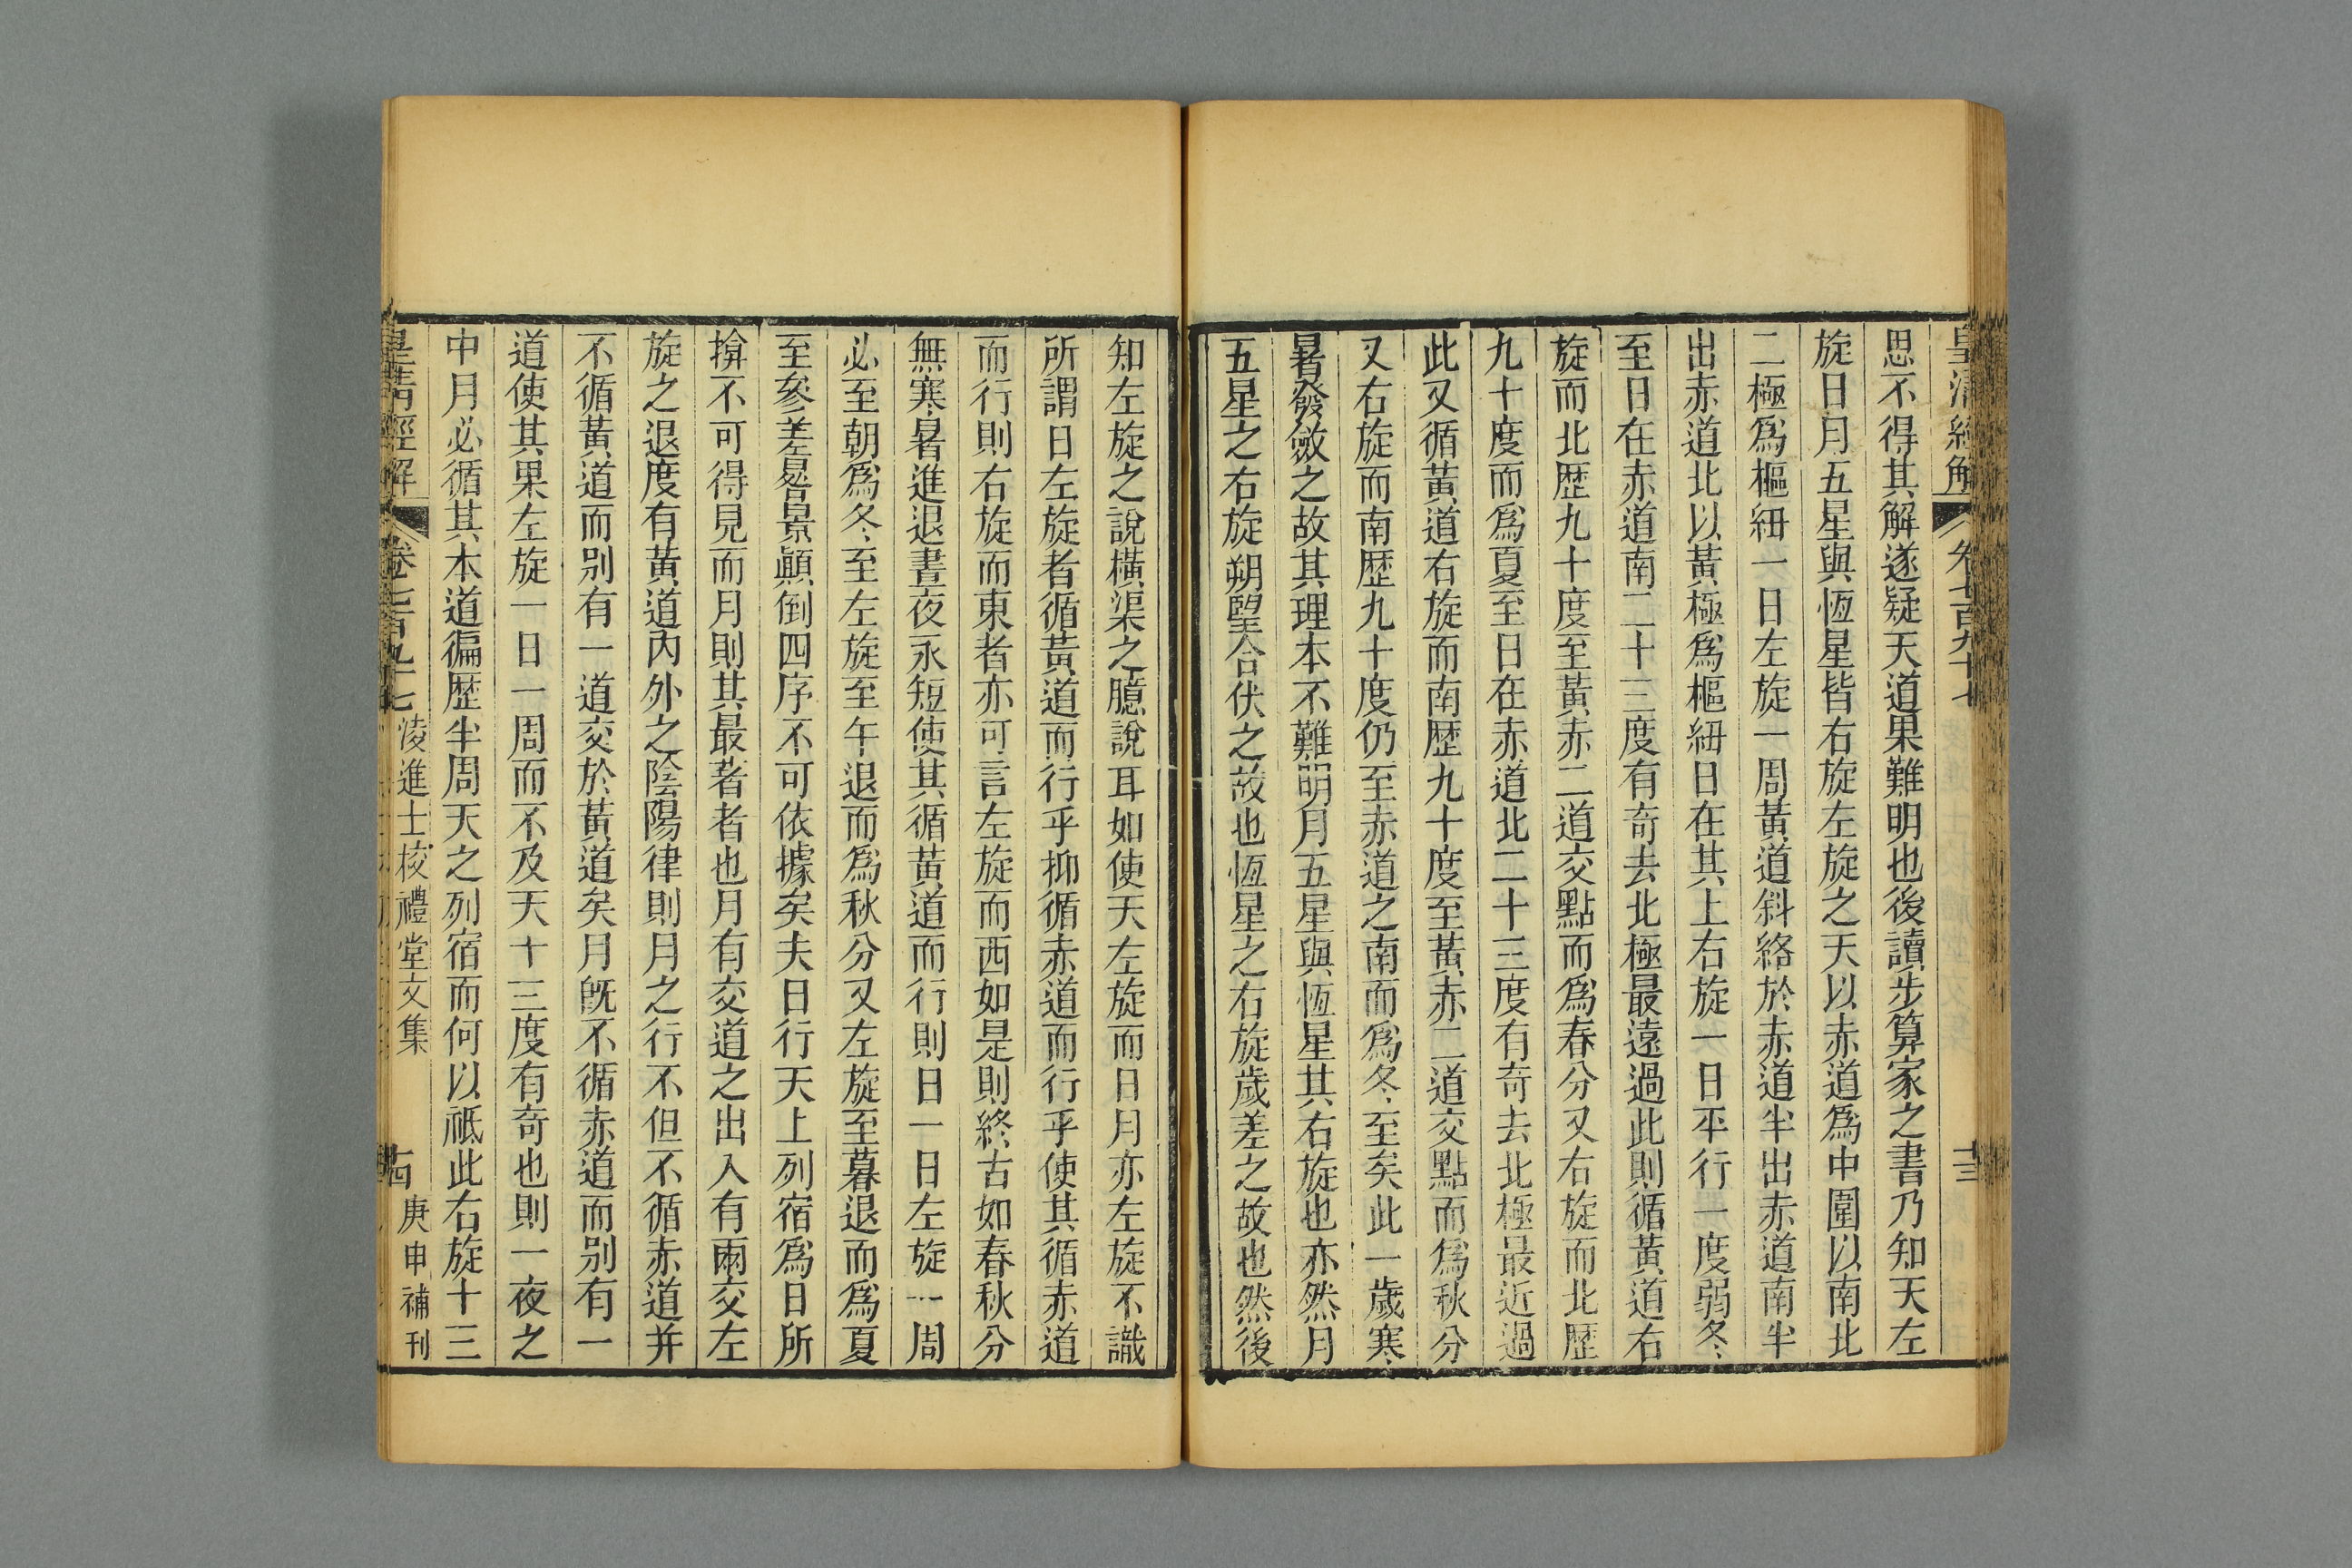 皇清經解 卷七百九十七 十三
思不得其解遂疑天道果難明也後讀步算家之書乃知天左
旋日月五星與恆星皆右旋左旋之天以赤道爲中圍以南北
二極爲樞紐一日左旋一周黃道斜絡於赤道半出赤道南半
出赤道北以黃極爲樞紐日在其上右旋一日平行一度弱冬
至日在赤道南二十三度有奇去北極最遠過此則循黃道右
旋而北歷九十度至黃赤二道交點而爲春分又右旋而北歷
九十度而爲夏至日在赤道北二十三度有奇去北極最近過
此又循黃道右旋而南歷九十度至黃赤二道交點而爲秋分
又右旋而南歷九十度仍至赤道之南而爲冬至矣此一歲寒
暑發斂之故其理本不難明月五星與恆星其右旋也亦然月
五星之右旋朔望合伏之故也恆星之右旋歲差之故也然後
知左旋之說橫渠之臆說耳如使天左旋而日月亦左旋不識
所謂日左旋者循黃道而行乎抑循赤道而行乎使其循赤道
而行則右旋而東者亦可言左旋而西如是則終古如春秋分
無寒暑進退晝夜永短使其循黃道而行則日一日左旋一周
必至朝爲冬至左旋至午退而爲秋分又左旋至暮退而爲夏
至參差晷景顚倒四序不可依據矣夫日行天上列宿爲日所
揜不可得見而月則其最著者也月有交道之出入有兩交左
旋之退度有黃道內外之陰陽律則月之行不但不循赤道并
不循黃道而别有一道交於黃道矣月旣不循赤道而别有一
道使其果左旋一日一周而不及天十三度有奇也則一夜之
中月必循其本道徧歷半周天之列宿而何以祗此右旋十三
皇清經解 卷七百九十七 淩進士校禮堂文集 十四 庚申補刊